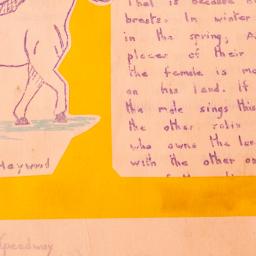 That is because
breasts. In winter
in the spring,
places of their
the female is
on his land. If
the male sings his
the other robin
who owns the
with the other
Haywood
Speedway